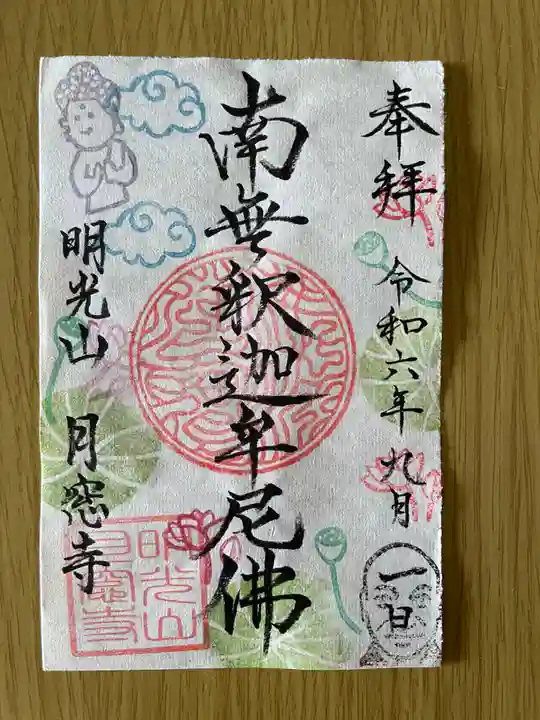 奉拝
令和六年九月
一日
南無釈迦牟尼佛
明光山 月窓寺
明光山
月窓寺